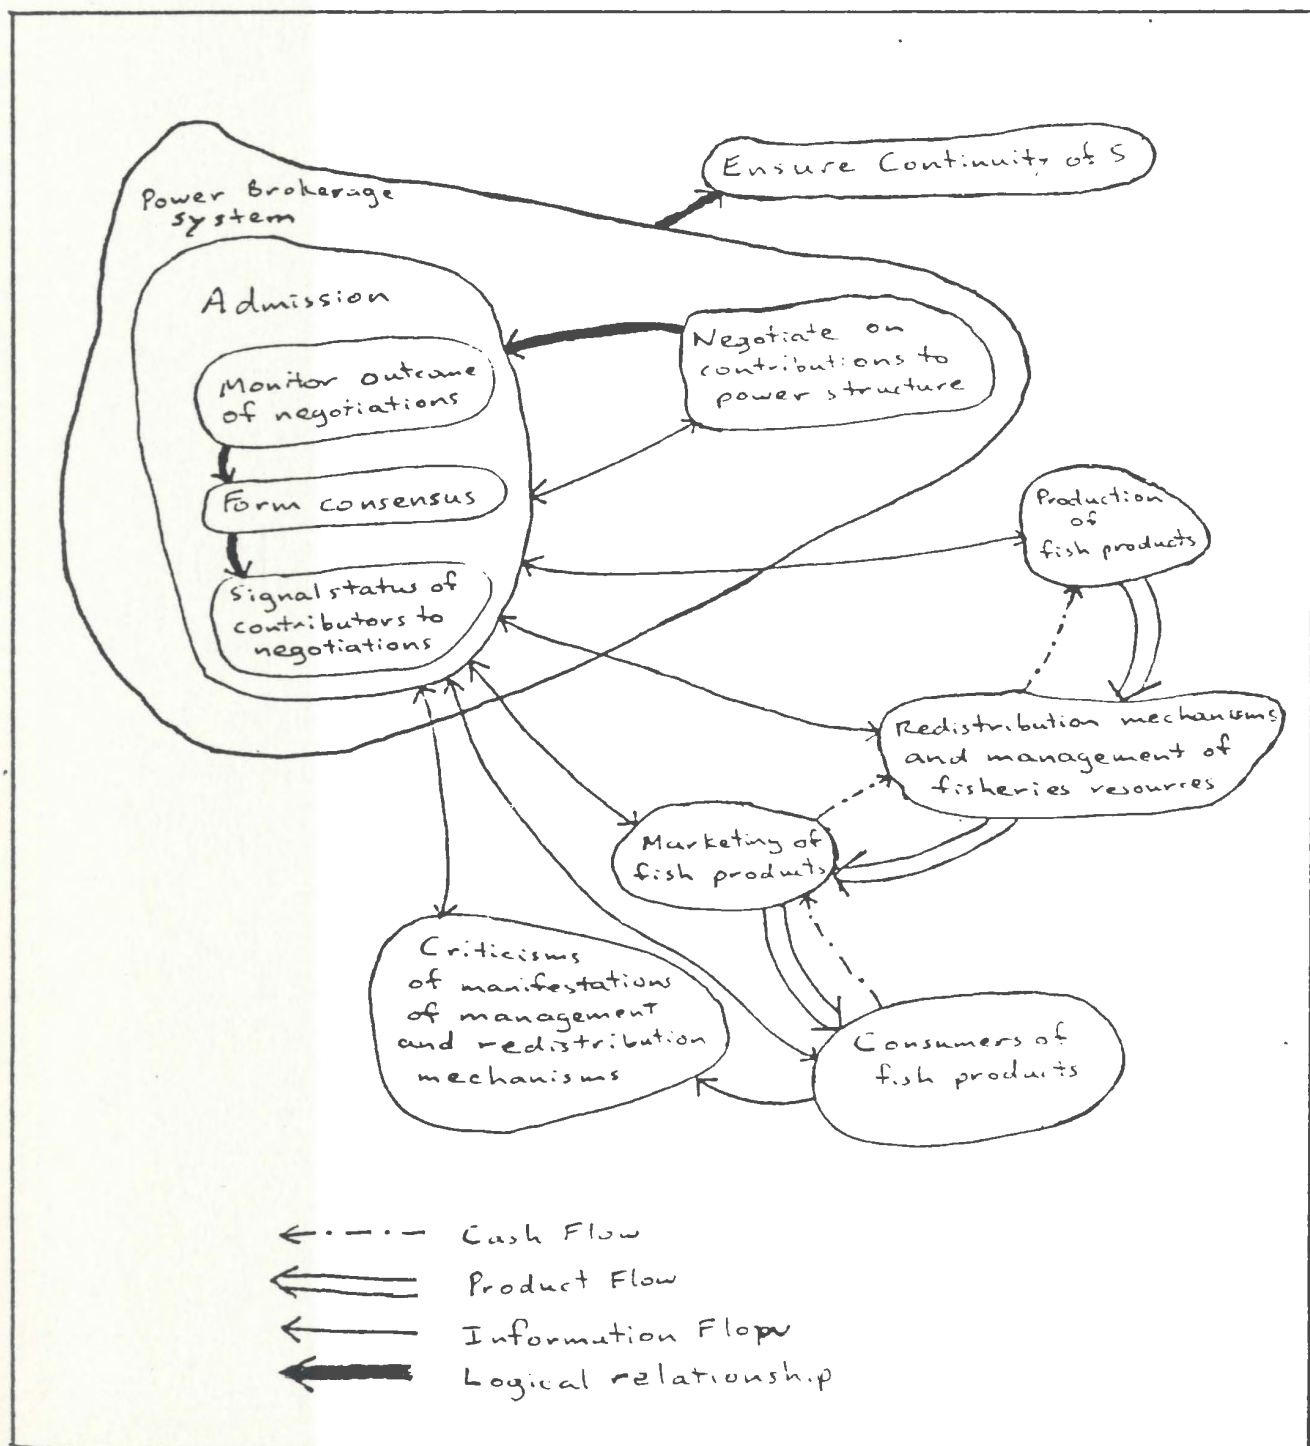 Ensure Continuity of S
Power Brokerage
system
Admission
Monitor outcome
of negotiations
Form consensus
Signal status of
contributors to
negotiations
Negotiate on
contributions to
power structure
Production
of
fish products
Redistribution mechanisms
and management of
fisheries resources
Marketing of
fish products
Criticisms
of manifestations
of management
and redistribution
mechanisms
Consumers of
fish products
Cash Flow
Product Flow
Information Flow
Logical relationship